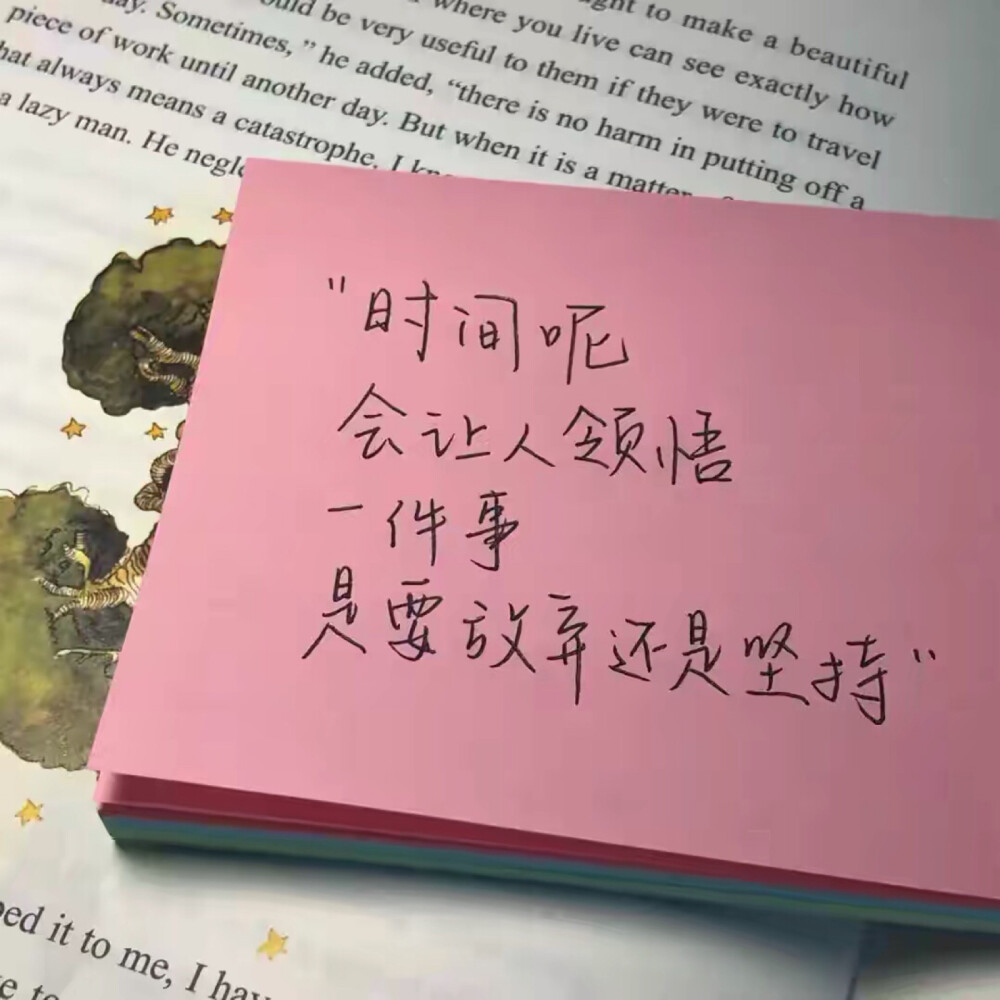 ght to make a beautiful
where you live can see exactly how
ould be very useful to them if they were to travel
ay. Sometimes,” he added, “there is no harm in putting off a
piece of work until another day. But when it is a matter
hat always means a catastrophe. I kn
a lazy man. He negle
"时间呢
会让人领悟
一件事
是要放弃还是坚持"
ped it to me, I hav
e to